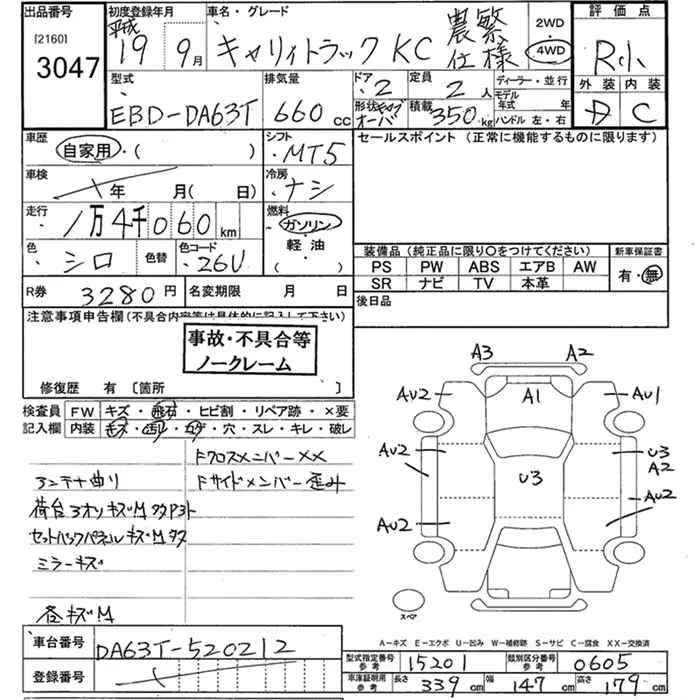 出品番号
[2160]
3047
初度登録年月
平成
19年9月
車名・グレード
キャリィトラック KC 農繁仕様
2WD
4WD
評価点
R小
外装 内装
D C
型式
EBD-DA63T
排気量
660 cc
ドア
2
定員
2 人
ディーラー・並行
モデル年式 年
形状
オーバ
積載
350 kg
ハンドル 左・右
車歴
自家用・( )
シフト
MT5
セールスポイント (正常に機能するものに限ります)
車検
年 月( 日)
冷房
ナシ
走行
1万4千060 km
燃料
ガソリン・
軽油・
色
シロ
色替
色コード
26U
装備品(純正品に限り○をつけてください)
PS PW ABS エアB AW
SR ナビ TV 本革
新車保証書
有・無
R券 3280円
名変期限 月 日
後日品
注意事項申告欄(不具合内容等は具体的に記入して下さい)
事故・不具合等
ノークレーム
修復歴 有〔箇所 〕
検査員記入欄
FW キズ・飛石・ヒビ割・リペア跡・×要
内装 キズ・汚れ・コゲ・穴・スレ・キレ・破レ
Fクロスメンバー××
アンテナ曲り
Fサイドメンバー歪み
荷台3オリキズM
セットバックパネルキズM
ミラーキズ
各キズM
A3 A2
AU2 A1 AU1
AU2 U3 U3
A2
AU2
AU2
スペア
A-キズ E-エクボ U-凹み W-補修跡 S-サビ C-腐食 XX-交換済
車台番号
DA63T-520212
登録番号
型式指定番号
参考
15201
類別区分番号
参考
0605
車庫証明用
参考
長さ 339cm
幅 147cm
高さ 179cm